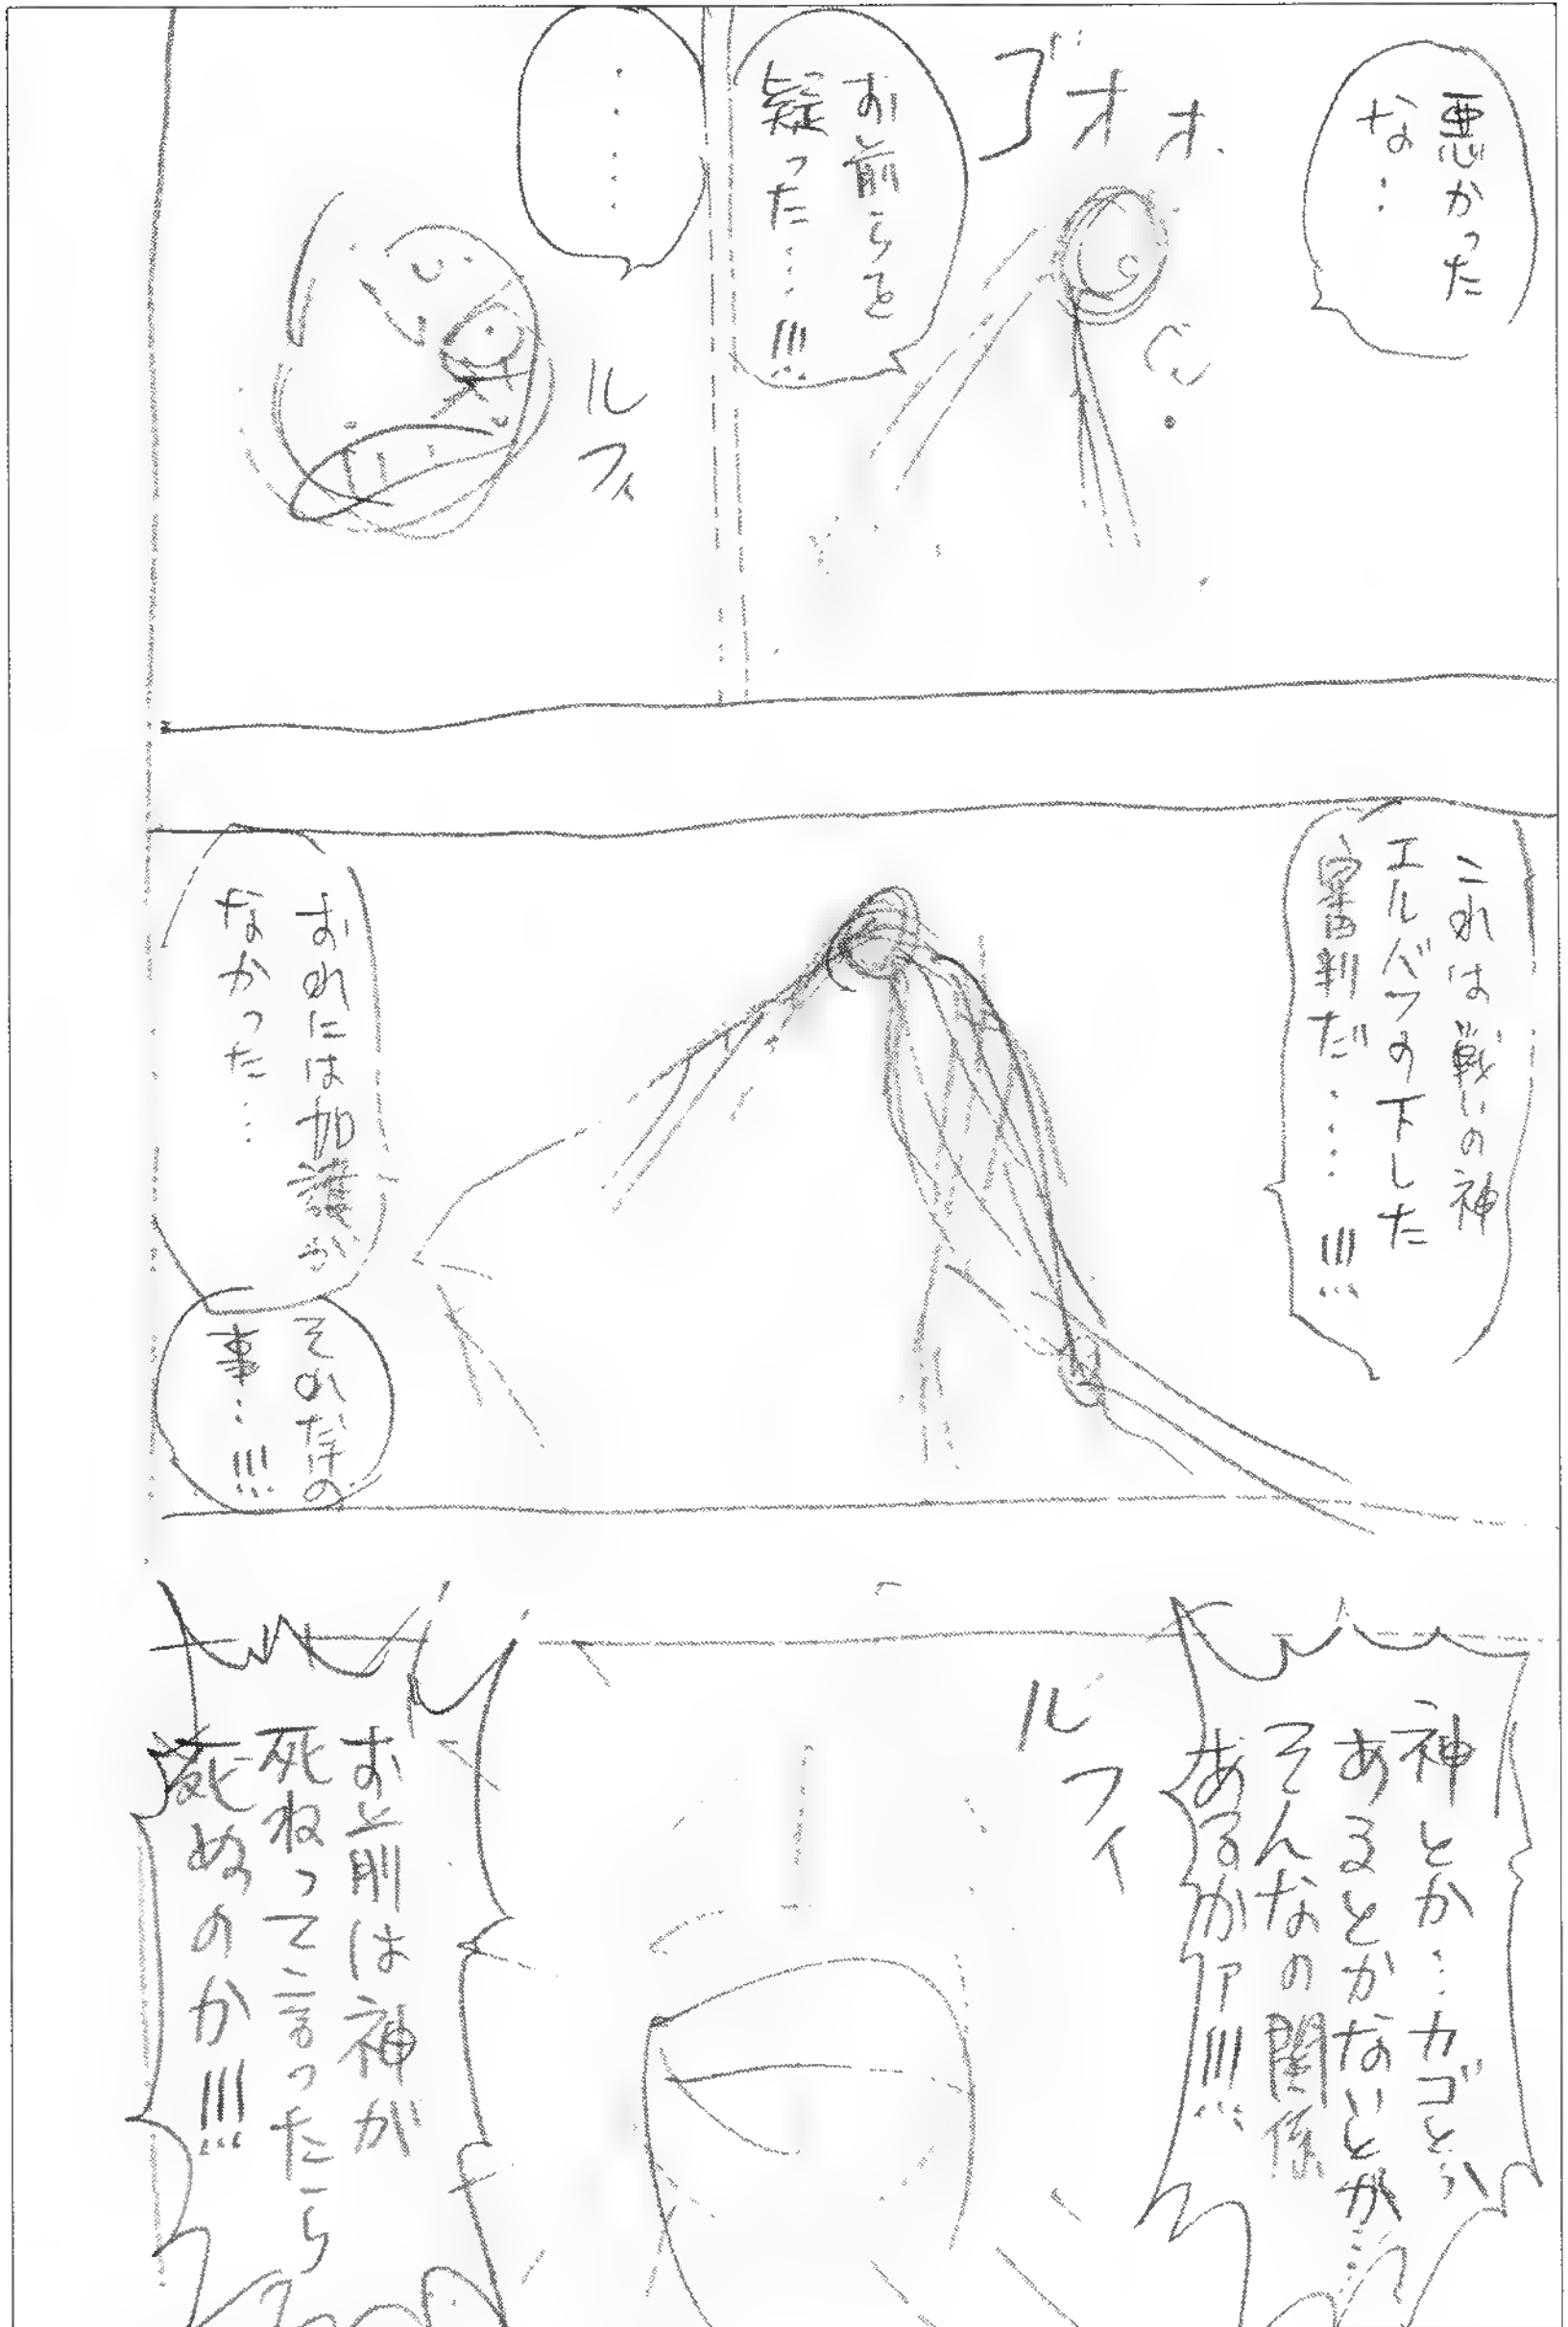 悪かった
な…
ゴオオ
お前らを
疑った…!!!
……
ルフィ
これは戦いの神
エルバフの下した
審判だ……!!!
おれには加護が
なかった…
それだけの
事…!!!
ルフィ
神とか…カゴとか
あるとかないとか…
そんなの関係
あるかァ!!!
お前は神が
死ねって言ったら
死ぬのか!!!